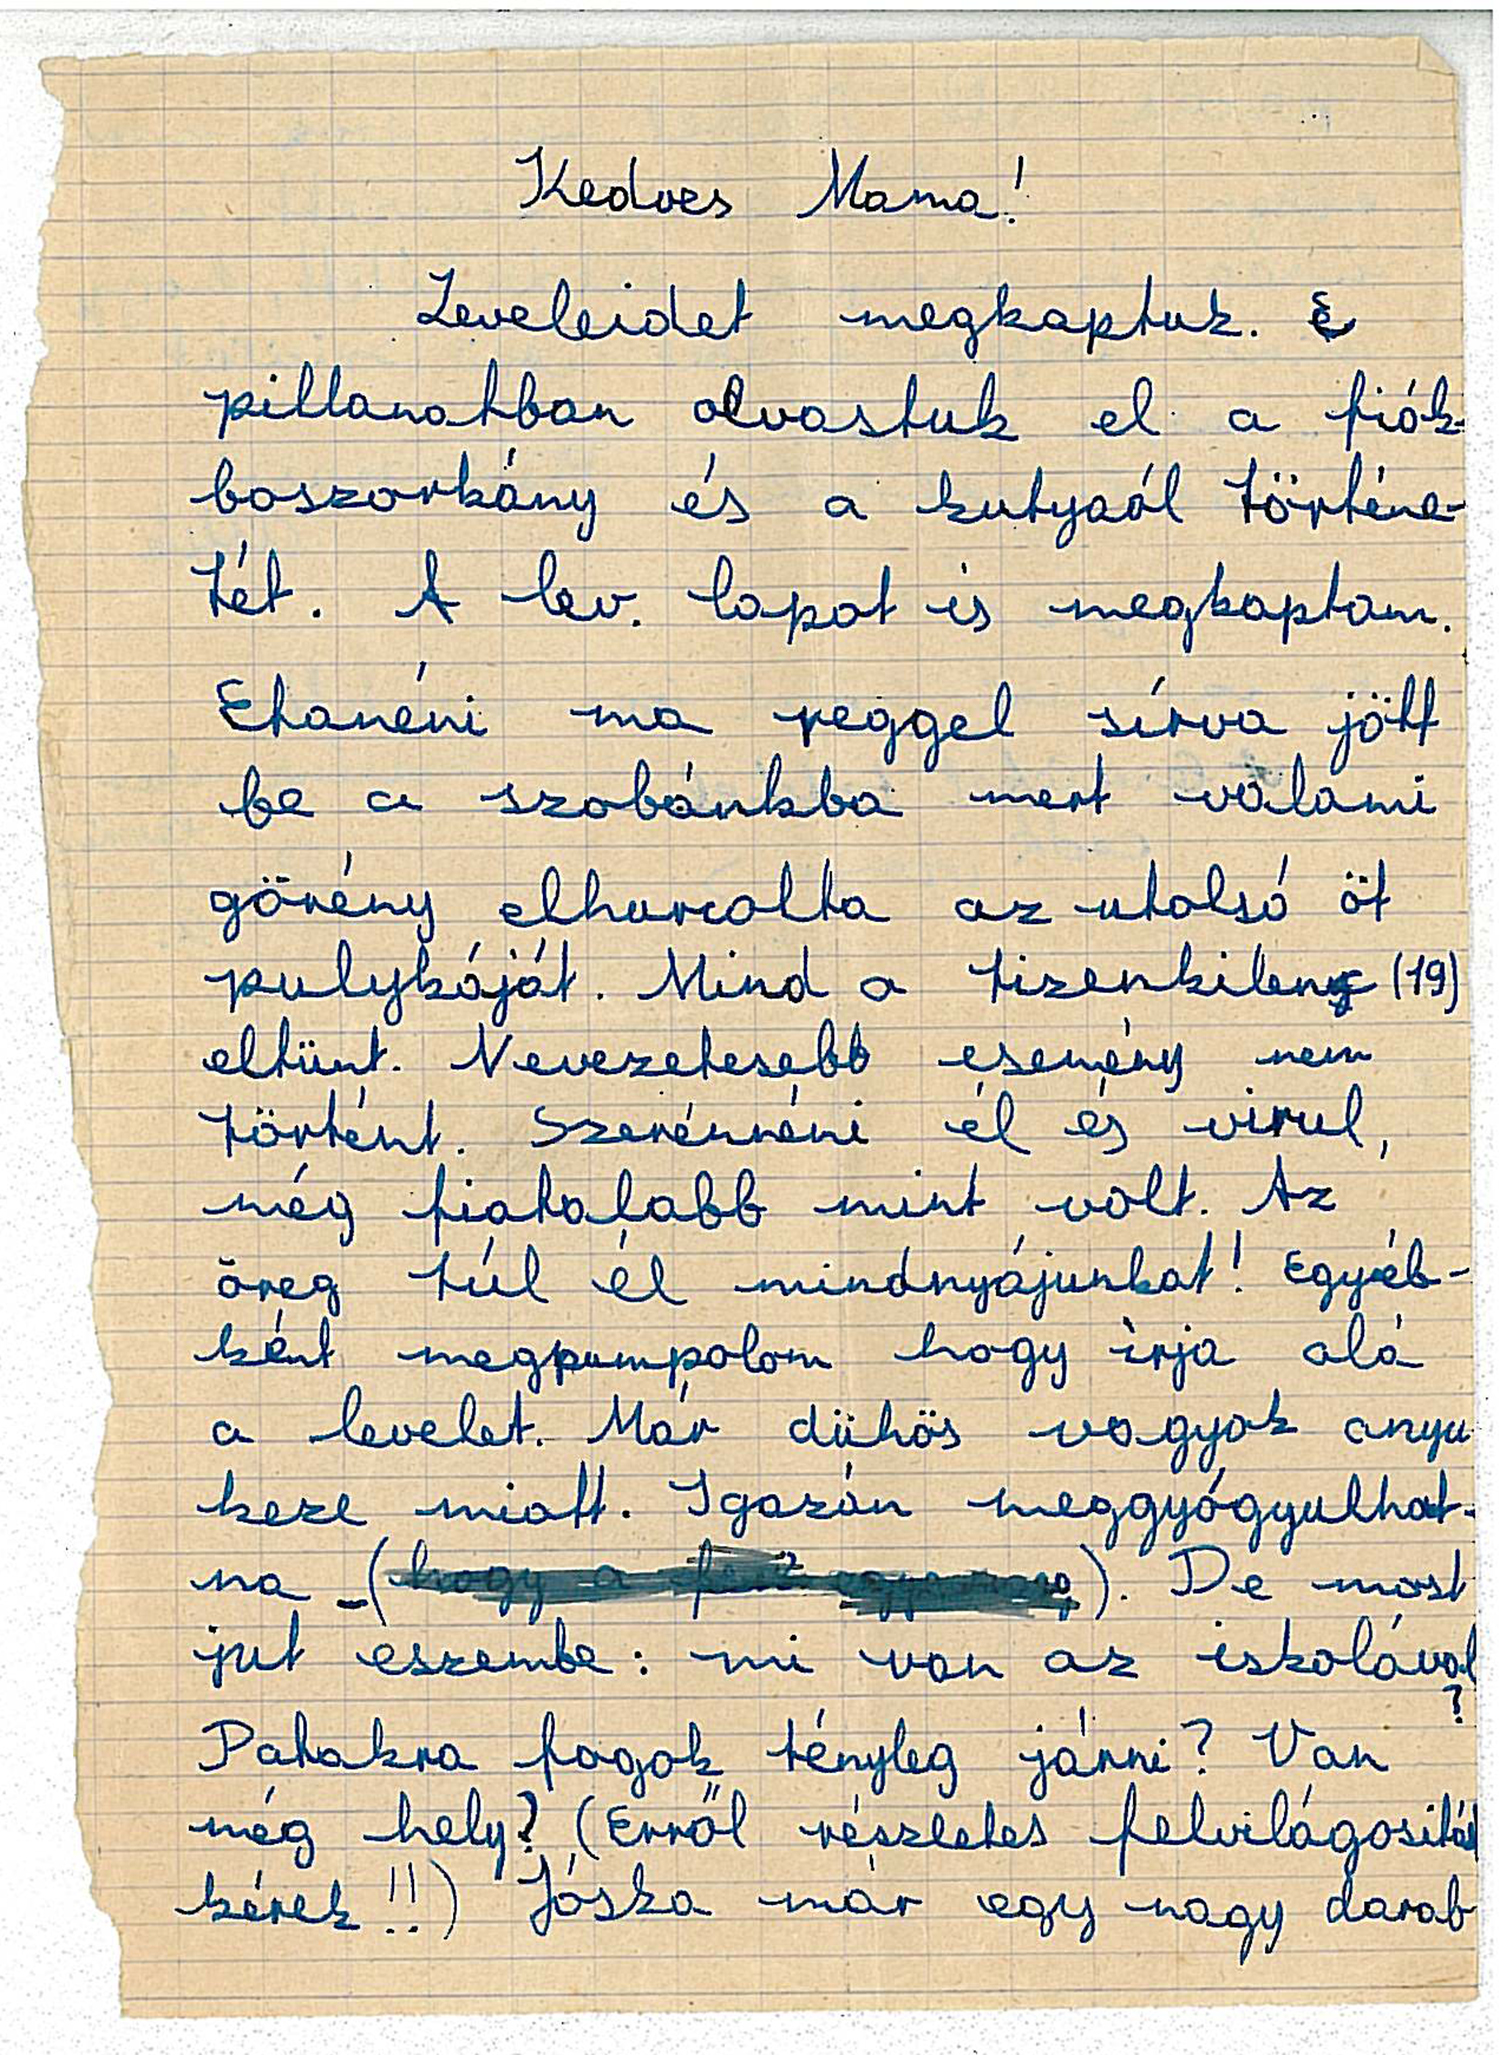 Kedves Mama!
Leveleidet megkaptuk. E
pillanatban olvastuk el a fiók-
boszorkány és a kutyaól történe-
tét. A lev. lapot is megkaptam.
Etanéni ma reggel sírva jött
be a szobánkba mert valami
görény elhurcolta az utolsó öt
pulykáját. Mind a tizenkilenc (19)
eltünt. Nevezetesebb esemény nem
történt. Szerénnéni él és virul,
még fiatalabb mint volt. Az
öreg túl él mindnyájunkat! Egyéb-
ként megpumpolom hogy írja alá
a levelet. Már dühös vagyok anyu
keze miatt. Igazán meggyógyulhat-
na - (hogy a). De most
jut eszembe: mi van az iskolával
?
Patakra fogok tényleg járni? Van
még hely? (Erről részletes felvilágosítást
kérek!!) Jóska már egy nagy darab